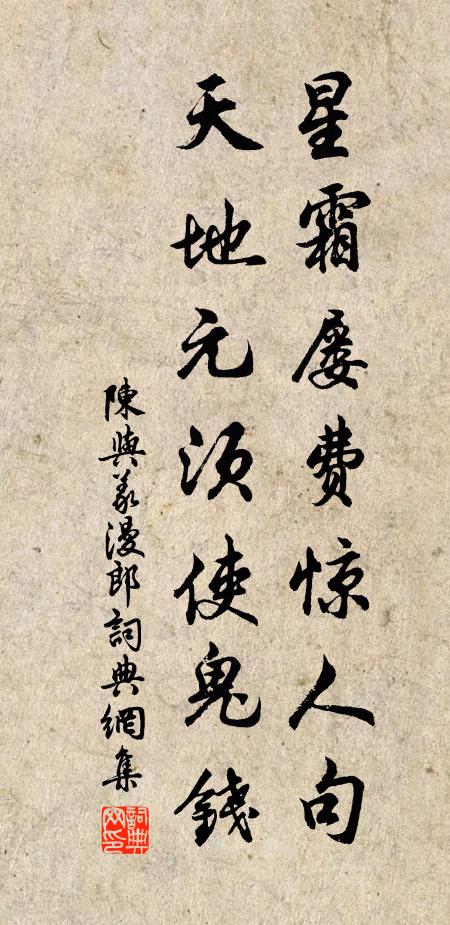 星霜屡费惊人句
天地元须使鬼錢
陳與義漫郎詞典網集
詞典網印